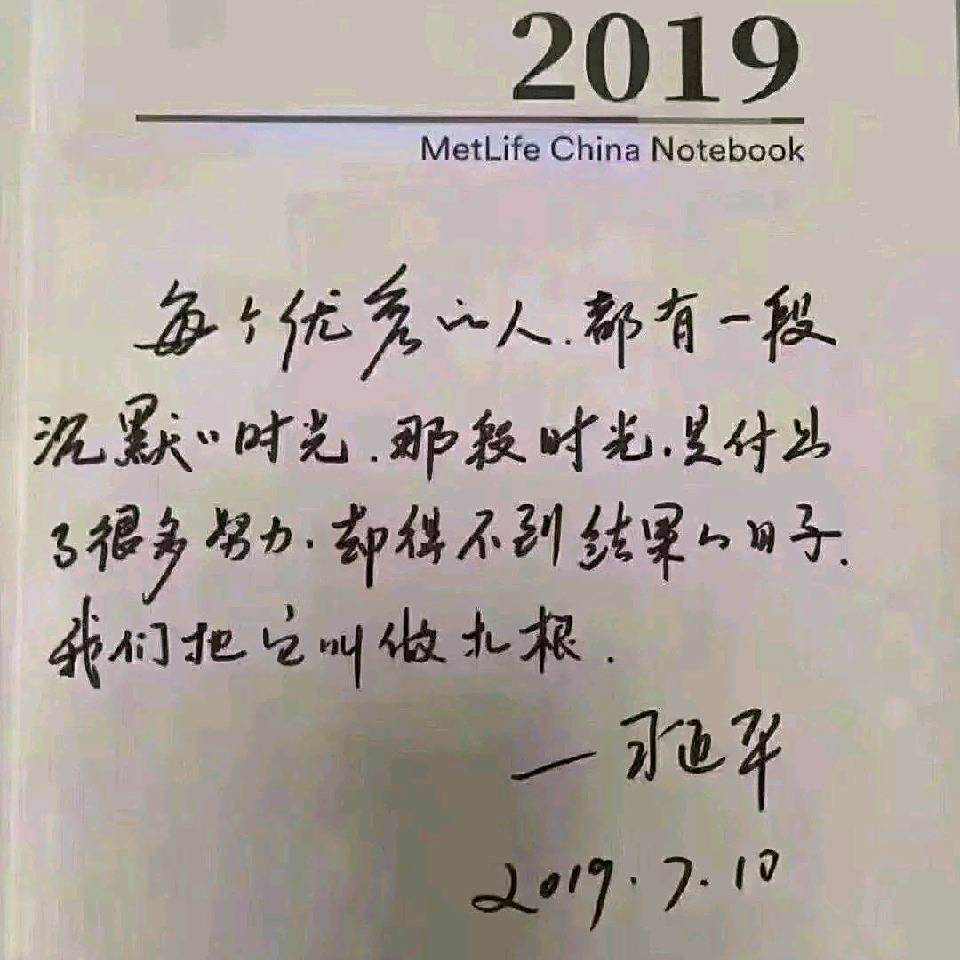 2019
MetLife China Notebook
每个优秀的人.都有一段
沉默的时光.那段时光.是付出
了很多努力.却得不到结果的日子.
我们把它叫做扎根.
— 习
2019.7.10